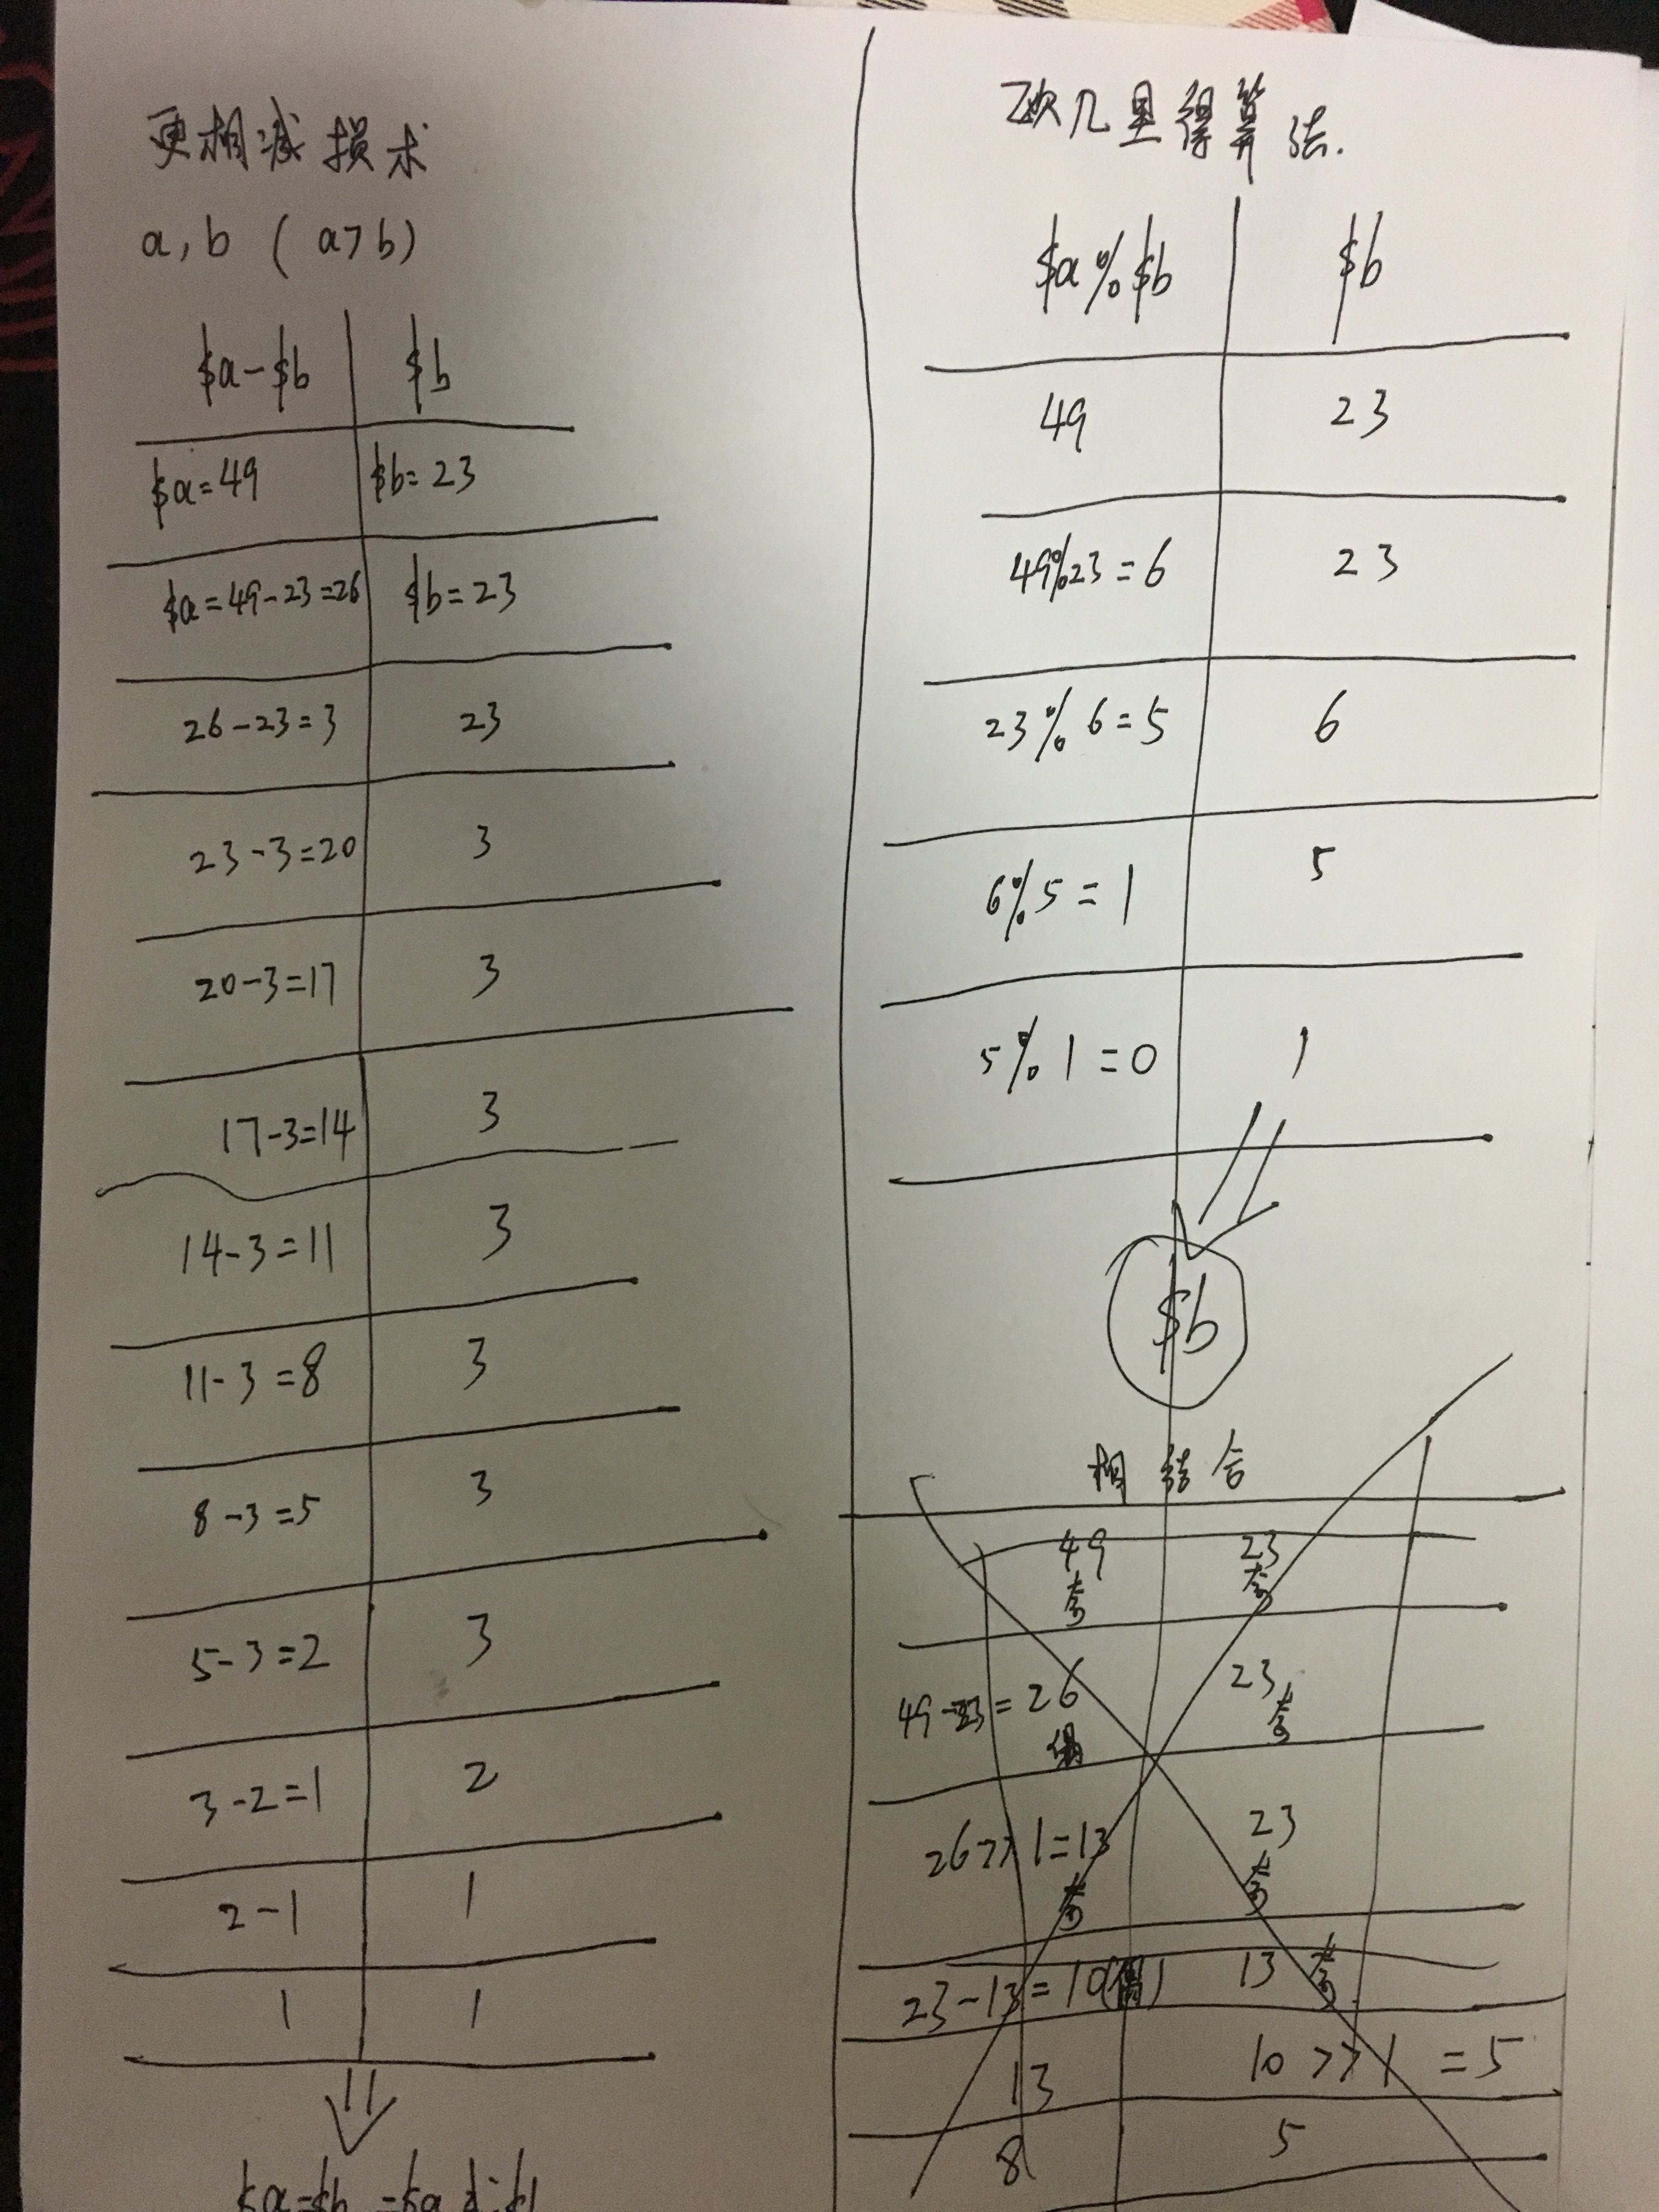 更相减损术
a, b ( a>b)
$a-$b $b
$a=49 $b=23
$a=49-23=26 $b=23
26-23=3 23
23-3=20 3
20-3=17 3
17-3=14 3
14-3=11 3
11-3=8 3
8-3=5 3
5-3=2 3
3-2=1 2
2-1 1
1 1
$a=$b
欧几里得算法.
$a%$b $b
49 23
49%23=6 23
23%6=5 6
6%5=1 5
5%1=0 1
$b
相结合
49 23
奇 奇
49-23=26 23
偶 奇
26>>1=13 23
奇 奇
23-13=10(偶) 13 奇
13 10>>1=5
8 5